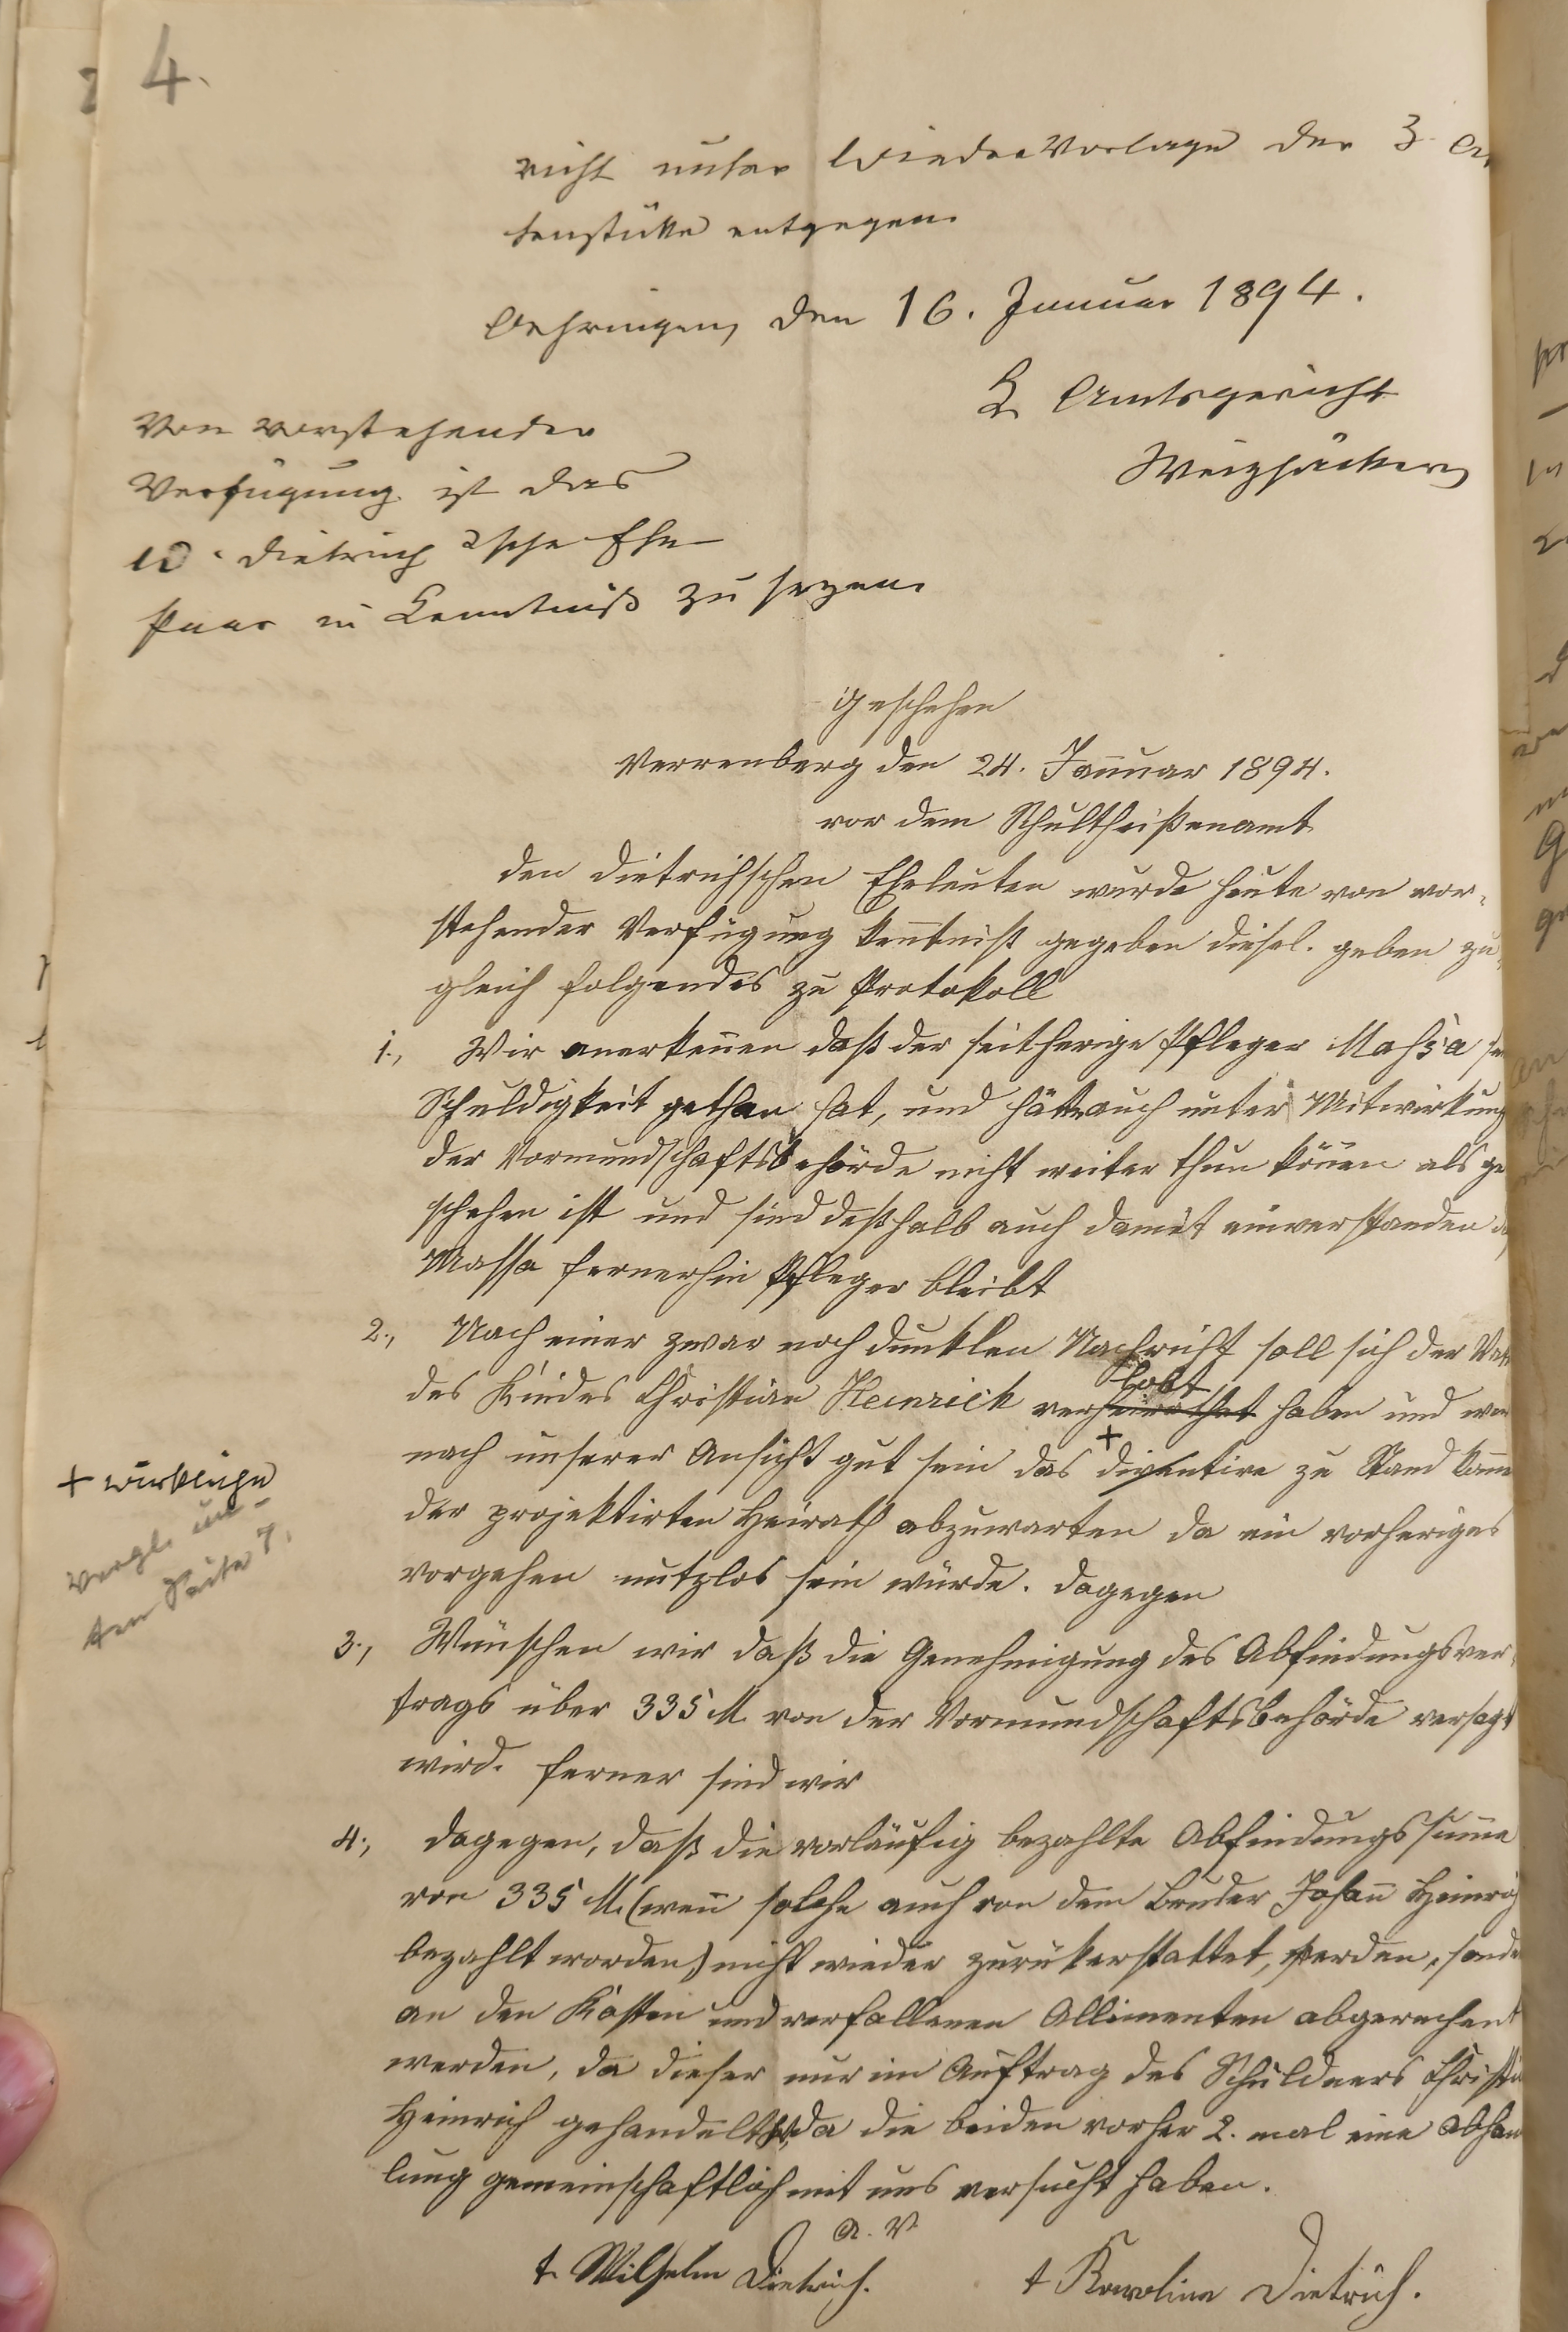 4.
richt unter Wiedervorlage der 3 
tenstücke entgegen.
Oehringen, den 16. Januar 1894.
K. Amtsgericht
Weizsäcker
Von vorstehender
Verfügung ist das
W. Dietrich'sche Ehe-
paar in Kenntniß zu sezen.
Geschehen
Verrenberg den 24. Januar 1894.
vor dem Schultheißenamt
den Dietrichschen Eheleuten wurde heute von vor-
stehender Verfügung Kenntniß gegeben diesel. geben zu-
gleich folgendes zu Protokoll
1., Wir anerkennen daß der seitherige Pfleger Massa
Schuldigkeit gethan hat, und hätte auch unter Mitwirkung
der Vormundschaftsbehörde nicht weiter thun können als ge
schehen ist und sind deßhalb auch damit einverstanden
Massa fernerhin Pfleger bleibt
2., Nach einer zwar noch dunklen Nachricht soll sich der
lobt
des Kindes Christian Heinrich verheirathet haben und
+
nach unserer Ansicht gut sein das zu Stand
der projektirten Heirath abzuwarten da ein vorheriges
vorgehen nutzlos sein würde. dagegen
+ wirkliche
Vergl. un-
ten Seite 7.
3., Wünschen wir daß die Genehmigung des Abfindungsver-
trags über 335 M. von der Vormundschaftsbehörde versagt
wird. ferner sind wir
4., dagegen, daß die vorläufig bezahlte Abfindungssumme
von 335 M. (wenn solche auch von dem Bruder Johann Heinrich
bezahlt worden) nicht wieder zurükerstattet, werden, sonde
an den Kosten und verfallenen Allimenten abgerechent
werden, da dieser nur im Auftrag des Schuldners Christia
Heinrich gehandelt hat, da die beiden vorher 2. mal eine Abhan
lung gemeinschaftlich mit uns versucht haben.
A. V.
t. Wilhelm Dietrich.
t Karoline Dietrich.